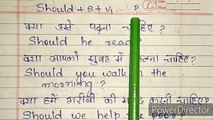 Should + S + V₁ .... ?
क्या उसे पढ़ना चाहिए ?
Should he read
क्या आपको सुबह में टहलना चाहिए?
Should you walk in the
morning ?
क्या हमें गरीबों की मदद करनी चाहिए?
Should we help poor